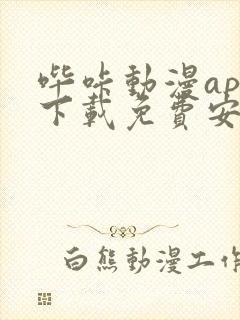 哔咔動漫ap
下載免費安
白熊動漫工作